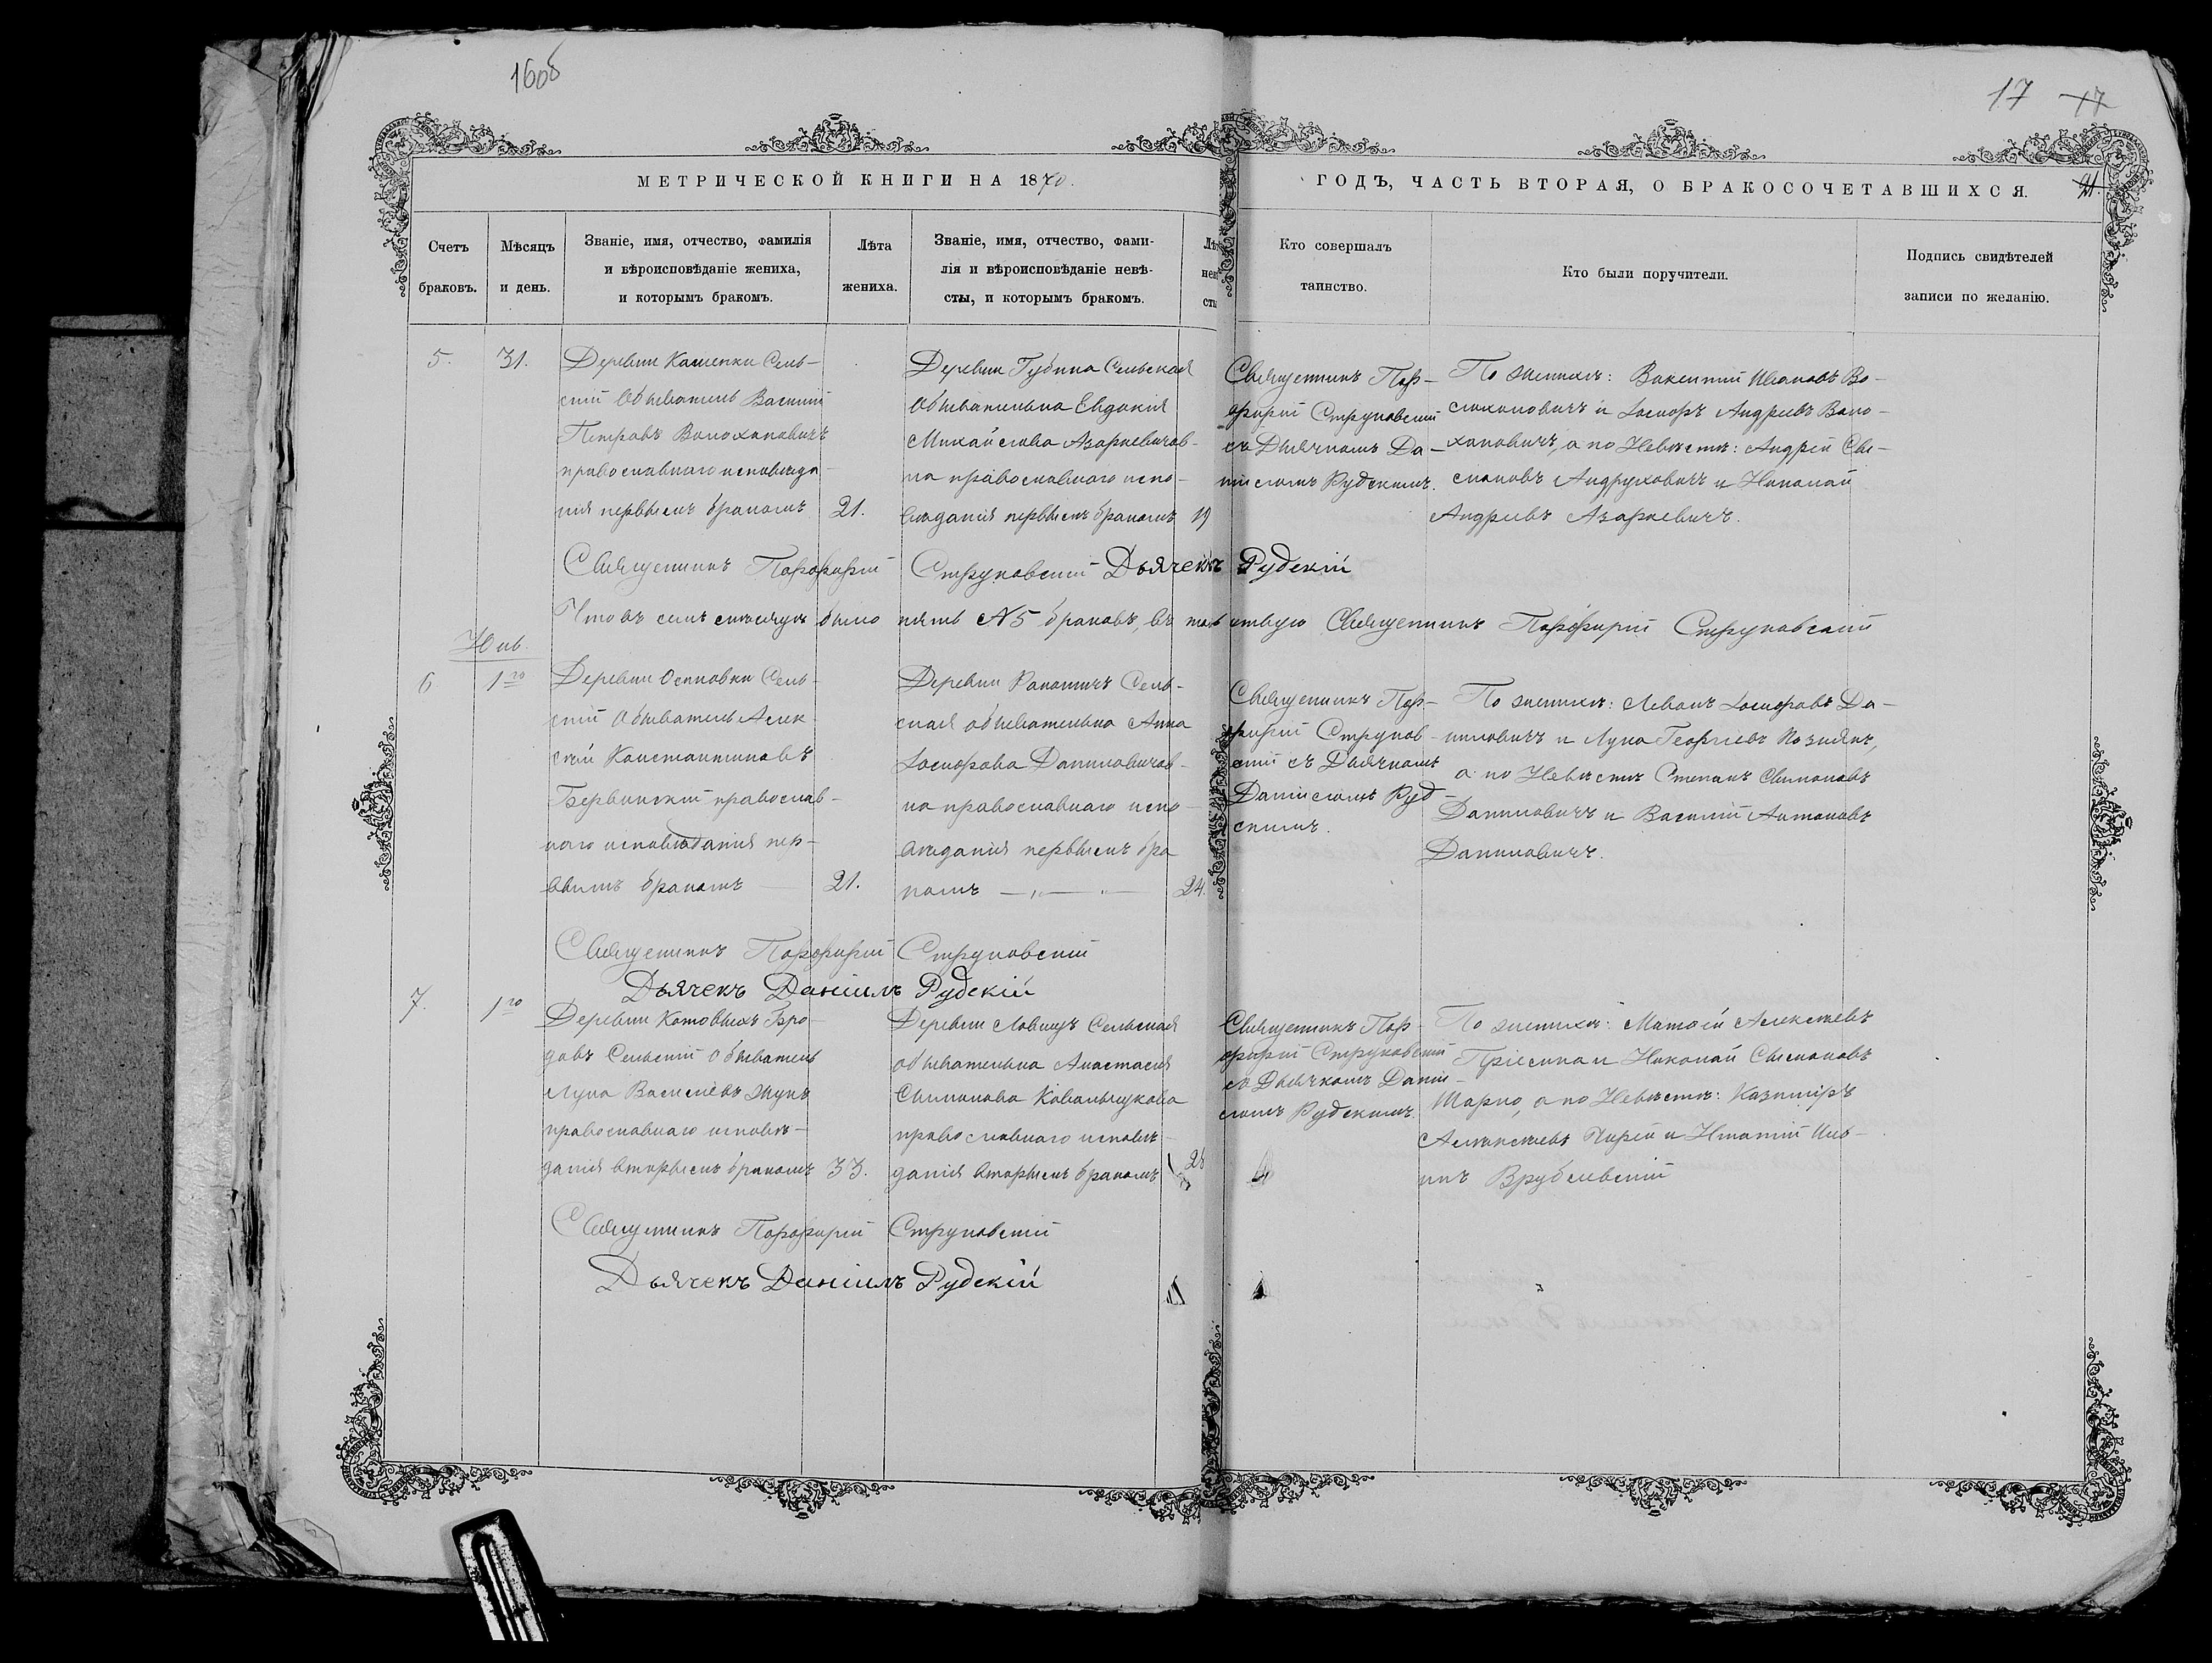 160б
17 17
МЕТРИЧЕСКОЙ КНИГИ НА 1870.
ГОДЪ, ЧАСТЬ ВТОРАЯ, О БРАКОСОЧЕТАВШИХСЯ.
21.
Счетъ
браковъ.
Мѣсяцъ
и день.
Званіе, имя, отчество, фамилія
и вѣроисповѣданіе жениха,
и которымъ бракомъ.
Лѣта
жениха.
Званіе, имя, отчество, фами-
лія и вѣроисповѣданіе невѣ-
сты, и которымъ бракомъ.
Кто совершалъ
таинство.
Кто были поручители.
Подпись свидѣтелей
записи по желанію.
5.
31.
Деревни Сель-
скій Обыватель Василій
Петровъ Волохановичъ
православнаго исповѣда-
нія первымъ бракомъ
21.
Деревни Губина Сельская
Обывательна Евдокія
Михайлова Азаркевичов-
на православнаго испо-
вѣданія первымъ бракомъ
19
Священникъ Пор-
фирій Струковскій
съ Дьячкомъ Да-
ніиломъ Рудскимъ.
По женихѣ: Викентій Ивановъ Во-
лохановичъ и Іосифъ Андреевъ Воло-
хановичъ, а по Невѣстѣ: Андрей
Андруховичъ и Николай
Андреевъ Азаркевичъ.
Священникъ Порфирій Струковскій Дьячекъ Рудскій
Что въ семъ мѣсяцѣ было пять № 5 браковъ, въ томъ Священникъ Порфирій Струковскій
Юнь
6
1го
Деревни Осиповки Сель-
скій Обыватель Алек-
сѣй Константиновъ
православ-
наго исповѣданія пер-
вымъ бракомъ
21.
Деревни Сель-
ская обывательна Анна
Іосифова Даниловичов-
на православнаго испо-
вѣданія первымъ бра
комъ
24.
Священникъ Пор-
фирій Струков-
скій съ Дьячкомъ
Даніиломъ Руд-
скимъ.
По женихѣ: Леванъ Іосифовъ Да-
ниловичъ и Лука Георгіевъ Познякъ,
а по Невѣстѣ Степанъ Симоновъ
Даниловичъ и Василій Антоновъ
Даниловичъ.
Священникъ Порфирій Струковскій
Дьячекъ Даніилъ Рудскій
7.
1го
Деревни Котовыхъ Бро-
довъ Сельскій Обыватель
Лука Василіевъ Жукъ
православнаго исповѣ-
данія вторымъ бракомъ
33.
Деревни Ловищъ Сельская
обывательна Анастасія
Симонова Ковальчукова
православнаго исповѣ-
данія вторымъ бракомъ
28
Священникъ Пор-
фирій Струковскій
съ Дьячкомъ Дані-
иломъ Рудскимъ
По женихѣ: Матѳей Алексѣевъ
и Николай Симоновъ
Шарко, а по Невѣстѣ: Казимиръ
Алексѣевъ и Игнатій Иль-
инъ Врублевскій
Священникъ Порфирій Струковскій
Дьячекъ Даніилъ Рудскій